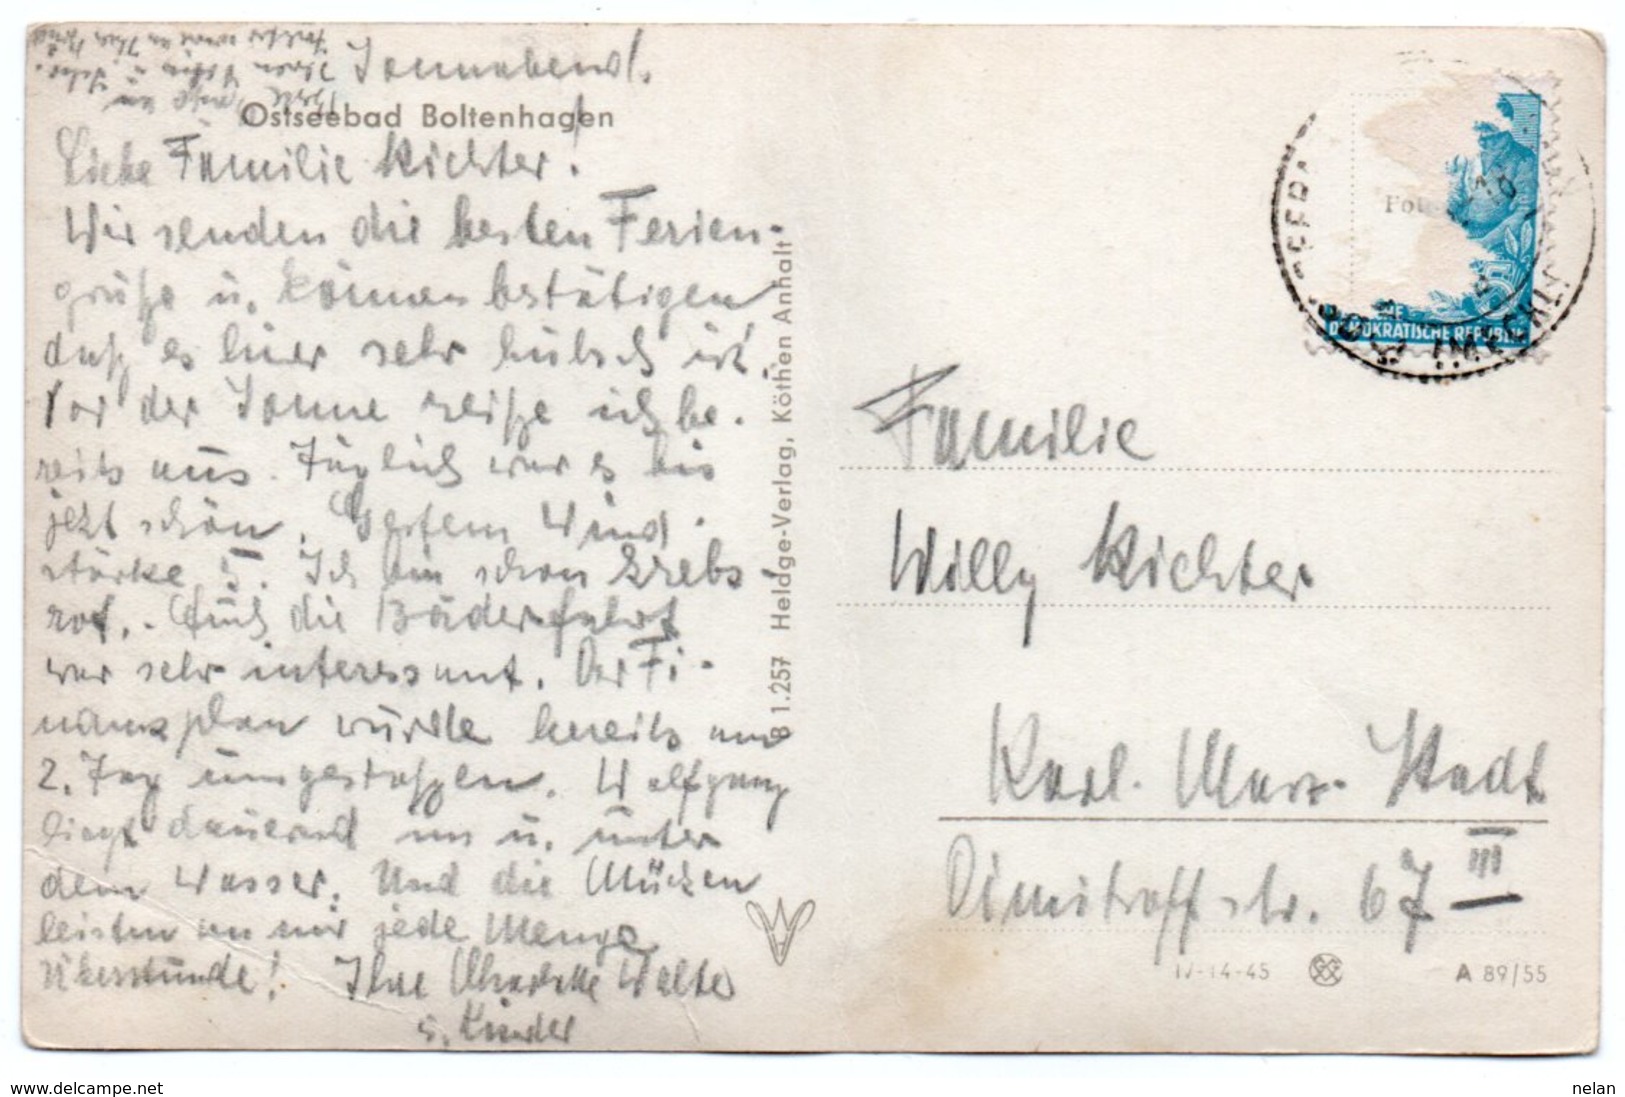 Sonnabend.
Ostseebad Boltenhagen
Liebe Familie Richter!
Wir senden die besten Ferien-
grüße u. können bestätigen
daß es hier sehr hübsch ist.
Vor der Sonne reiße ich be-
reits aus. Täglich war es bis
jetzt schön. Gestern Wind-
stärke 5. Ich bin schon krebs-
rot. - Auch die Bäderfahrt
war sehr interessant. Der Fi-
nanzplan wurde bereits am
2. Tag umgestoßen. Wolfgang
liegt dauernd im u. unter
dem Wasser. Und die Mücken
leisten an mir jede Menge
Überstunde! Ihre Charlotte Walter
u. Kinder
B 1.257 Heldge-Verlag, Köthen Anhalt
DEMOKRATISCHE REPUBLIK
Familie
Willy Richter
Karl-Marx-Stadt
Dimitroffstr. 67 III
IV-14-45 A 89/55
www.delcampe.net
nelan